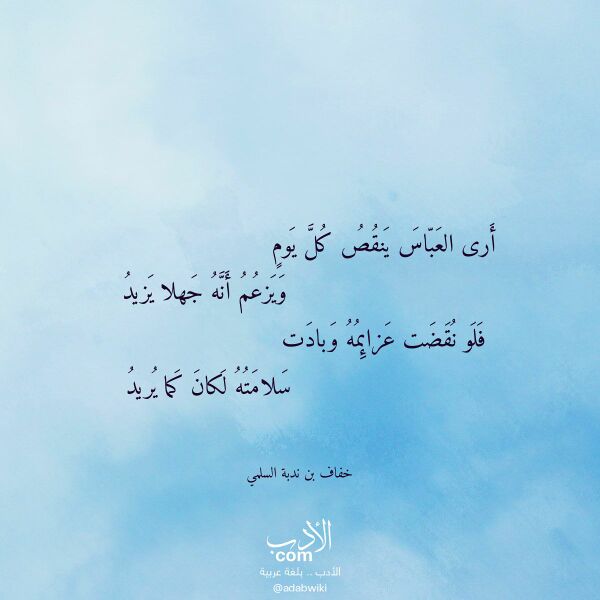 أَرى العَبّاسَ يَنقُصُ كُلَّ يَومٍ
وَيَزعُمُ أَنَّهُ جَهلا يَزيدُ
فَلَو نُقَضَت عَزائِمُهُ وَبادَت
سَلامَتُهُ لَكانَ كَما يُريدُ
خفاف بن ندبة السلمي
الأدب
com
الأدب .. بلغة عربية
@adabwiki